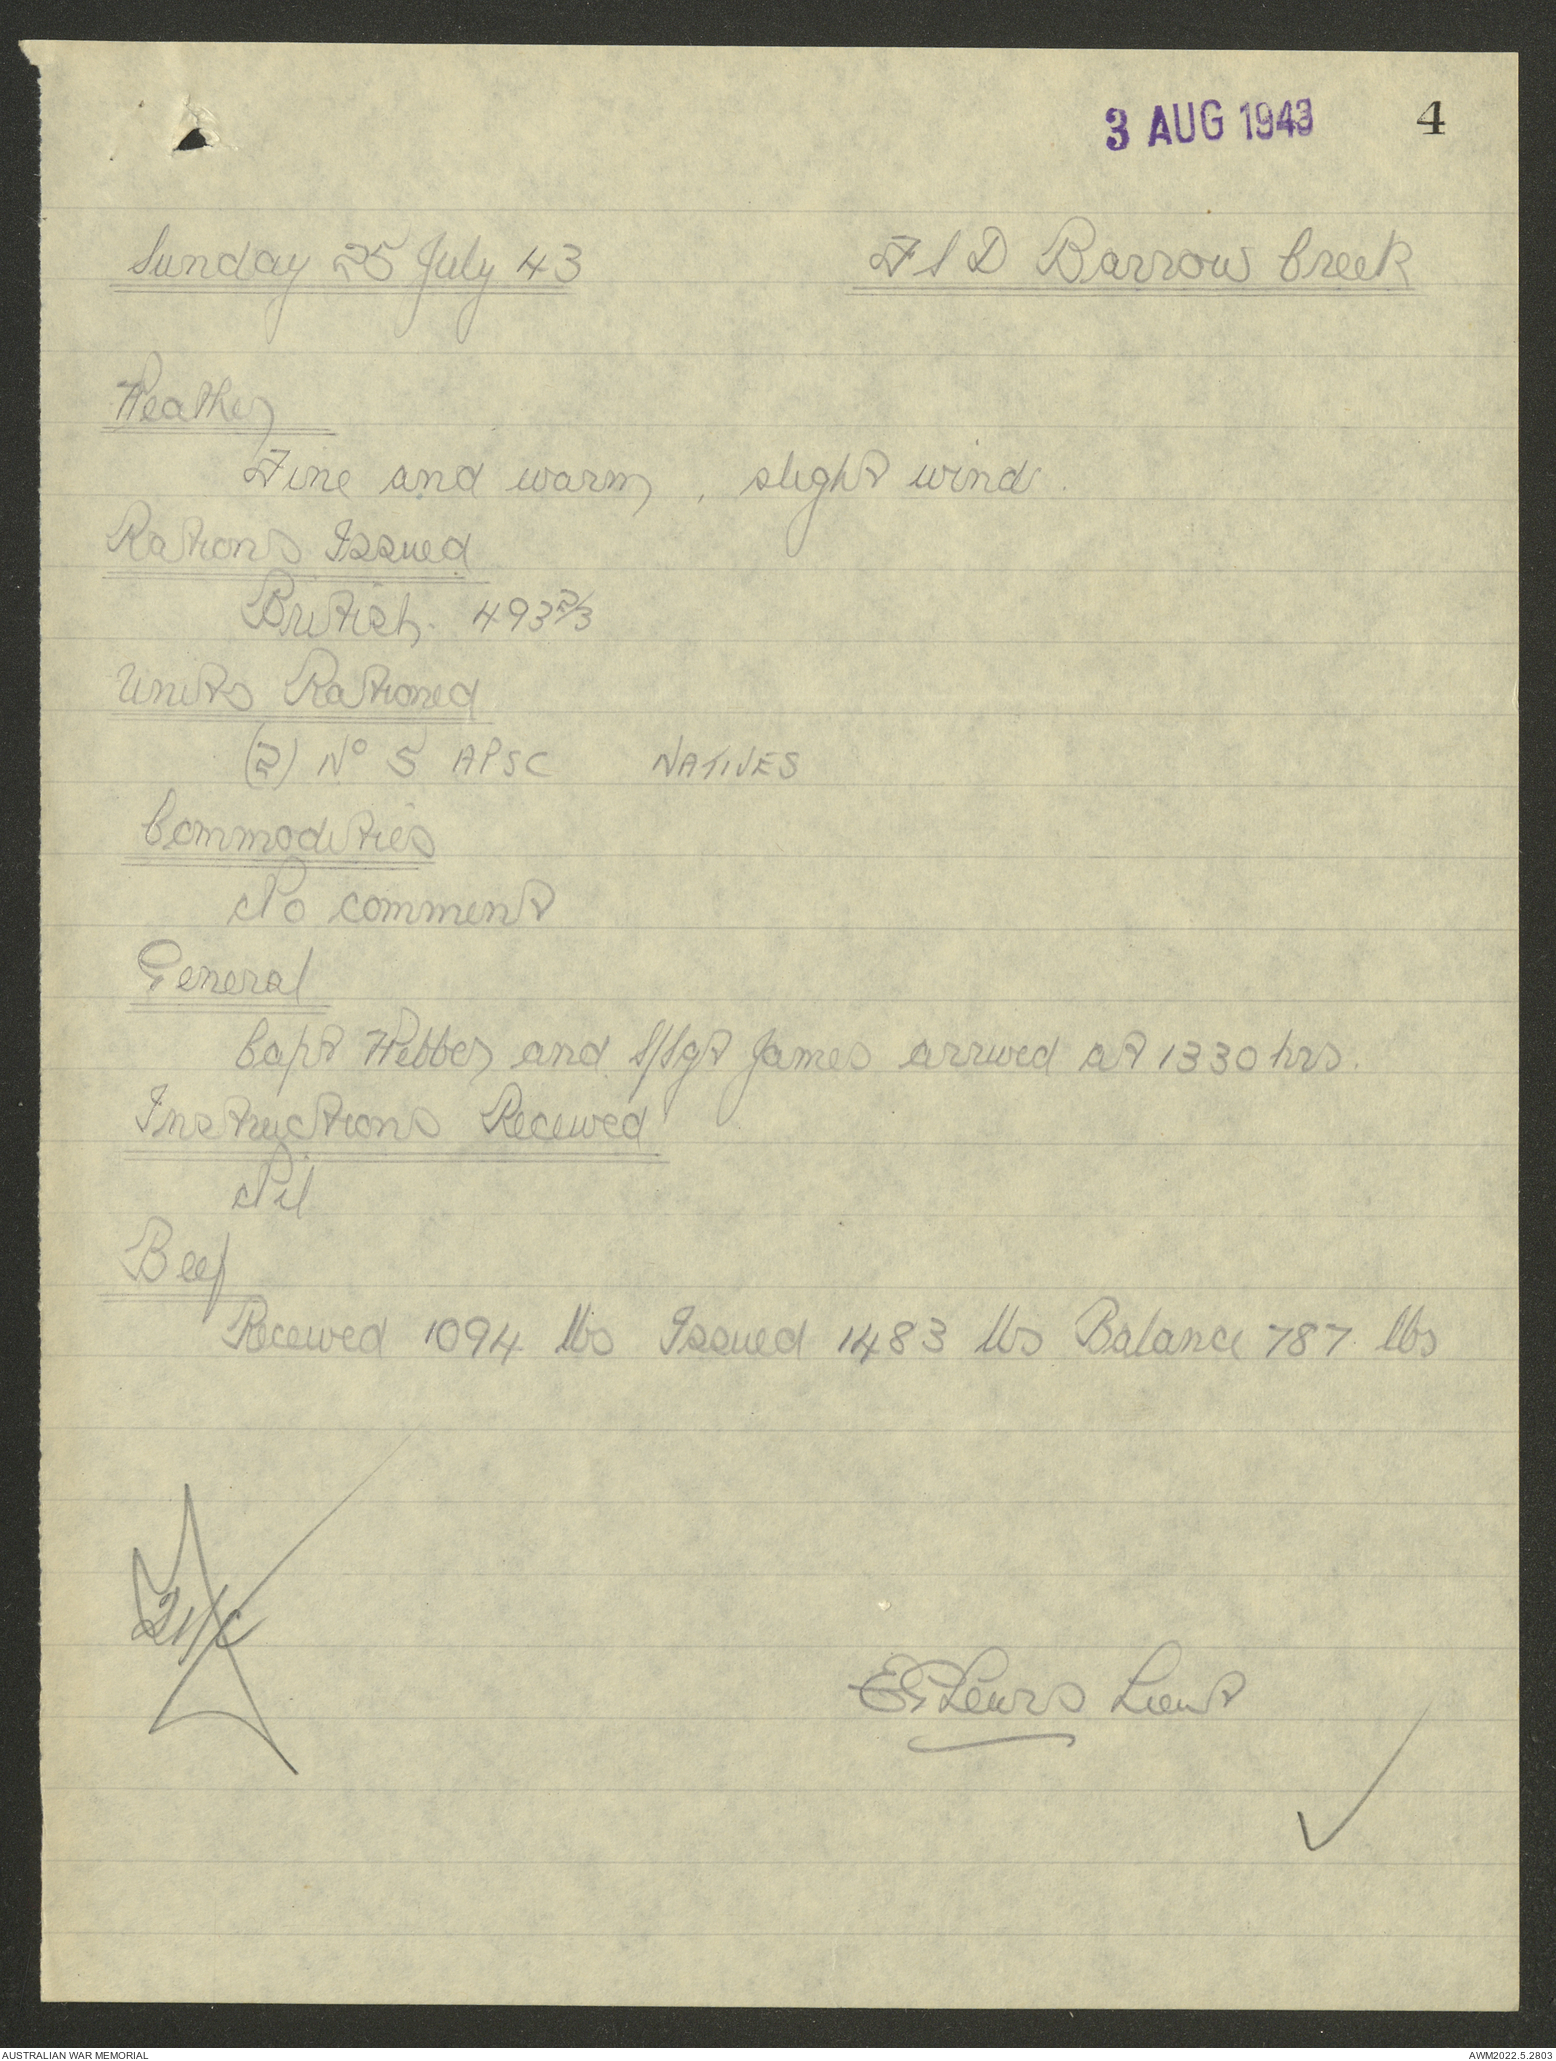 3 AUG 1943 4
Sunday 25 July 43 FSD Barrow Creek
Weather
Fine and warm, slight wind.
Rations Issued
British. 493 2/3
Units Rationed
(2) No 5 APSC NATIVES
Commodities
No comment
General
Capt Webber and S/Sgt James arrived at 1330 hrs.
Instructions Received
Nil
Beef
Received 1094 lbs Issued 1483 lbs Balance 787 lbs
Lieut
AUSTRALIAN WAR MEMORIAL AWM2022.5.2803